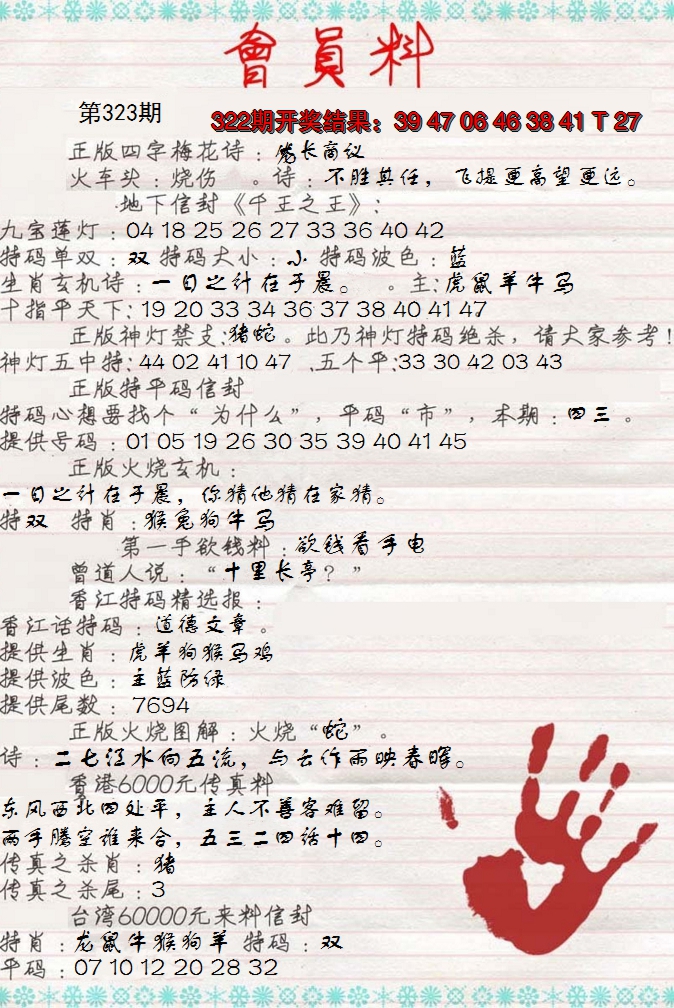 會員料
第323期
322期开奖结果：39 47 06 46 38 41 T 27
正版四字梅花诗：党长商议
火车头：烧伤 。诗：不胜其任，飞提更高望更远。
地下信封《千王之王》：
九宝莲灯：04 18 25 26 27 33 36 40 42
特码单双：双 特码大小：小 特码波色：蓝
生肖玄机诗：一日之计在于晨。 。主：虎鼠羊牛马
十指平天下：19 20 33 34 36 37 38 40 41 47
正版神灯禁支：猪蛇。此乃神灯特码绝杀，请大家参考！
神灯五中特：44 02 41 10 47 .五个平：33 30 42 03 43
正版特平码信封
特码心想要找个“为什么”，平码“市”，本期：四三。
提供号码：01 05 19 26 30 35 39 40 41 45
正版火烧玄机：
一日之计在于晨，你猜他猜在家猜。
特双 特肖：猴兔狗牛马
第一手欲钱料：欲钱看手电
曾道人说：“十里长亭？”
香江特码精选报：
香江话特码：道德文章。
提供生肖：虎羊狗猴马鸡
提供波色：主蓝防绿
提供尾数：7694
正版火烧图解：火烧“蛇”。
诗：二七江水向五流，与云作雨映春晖。
香港6000元传真料
东风西北四处平，主人不善客难留。
两手腾空谁来合，五三二四话十四。
传真之杀肖：猪
传真之杀尾：3
台湾60000元来料信封
特肖：龙鼠牛猴狗羊 特码：双
平码：07 10 12 20 28 32